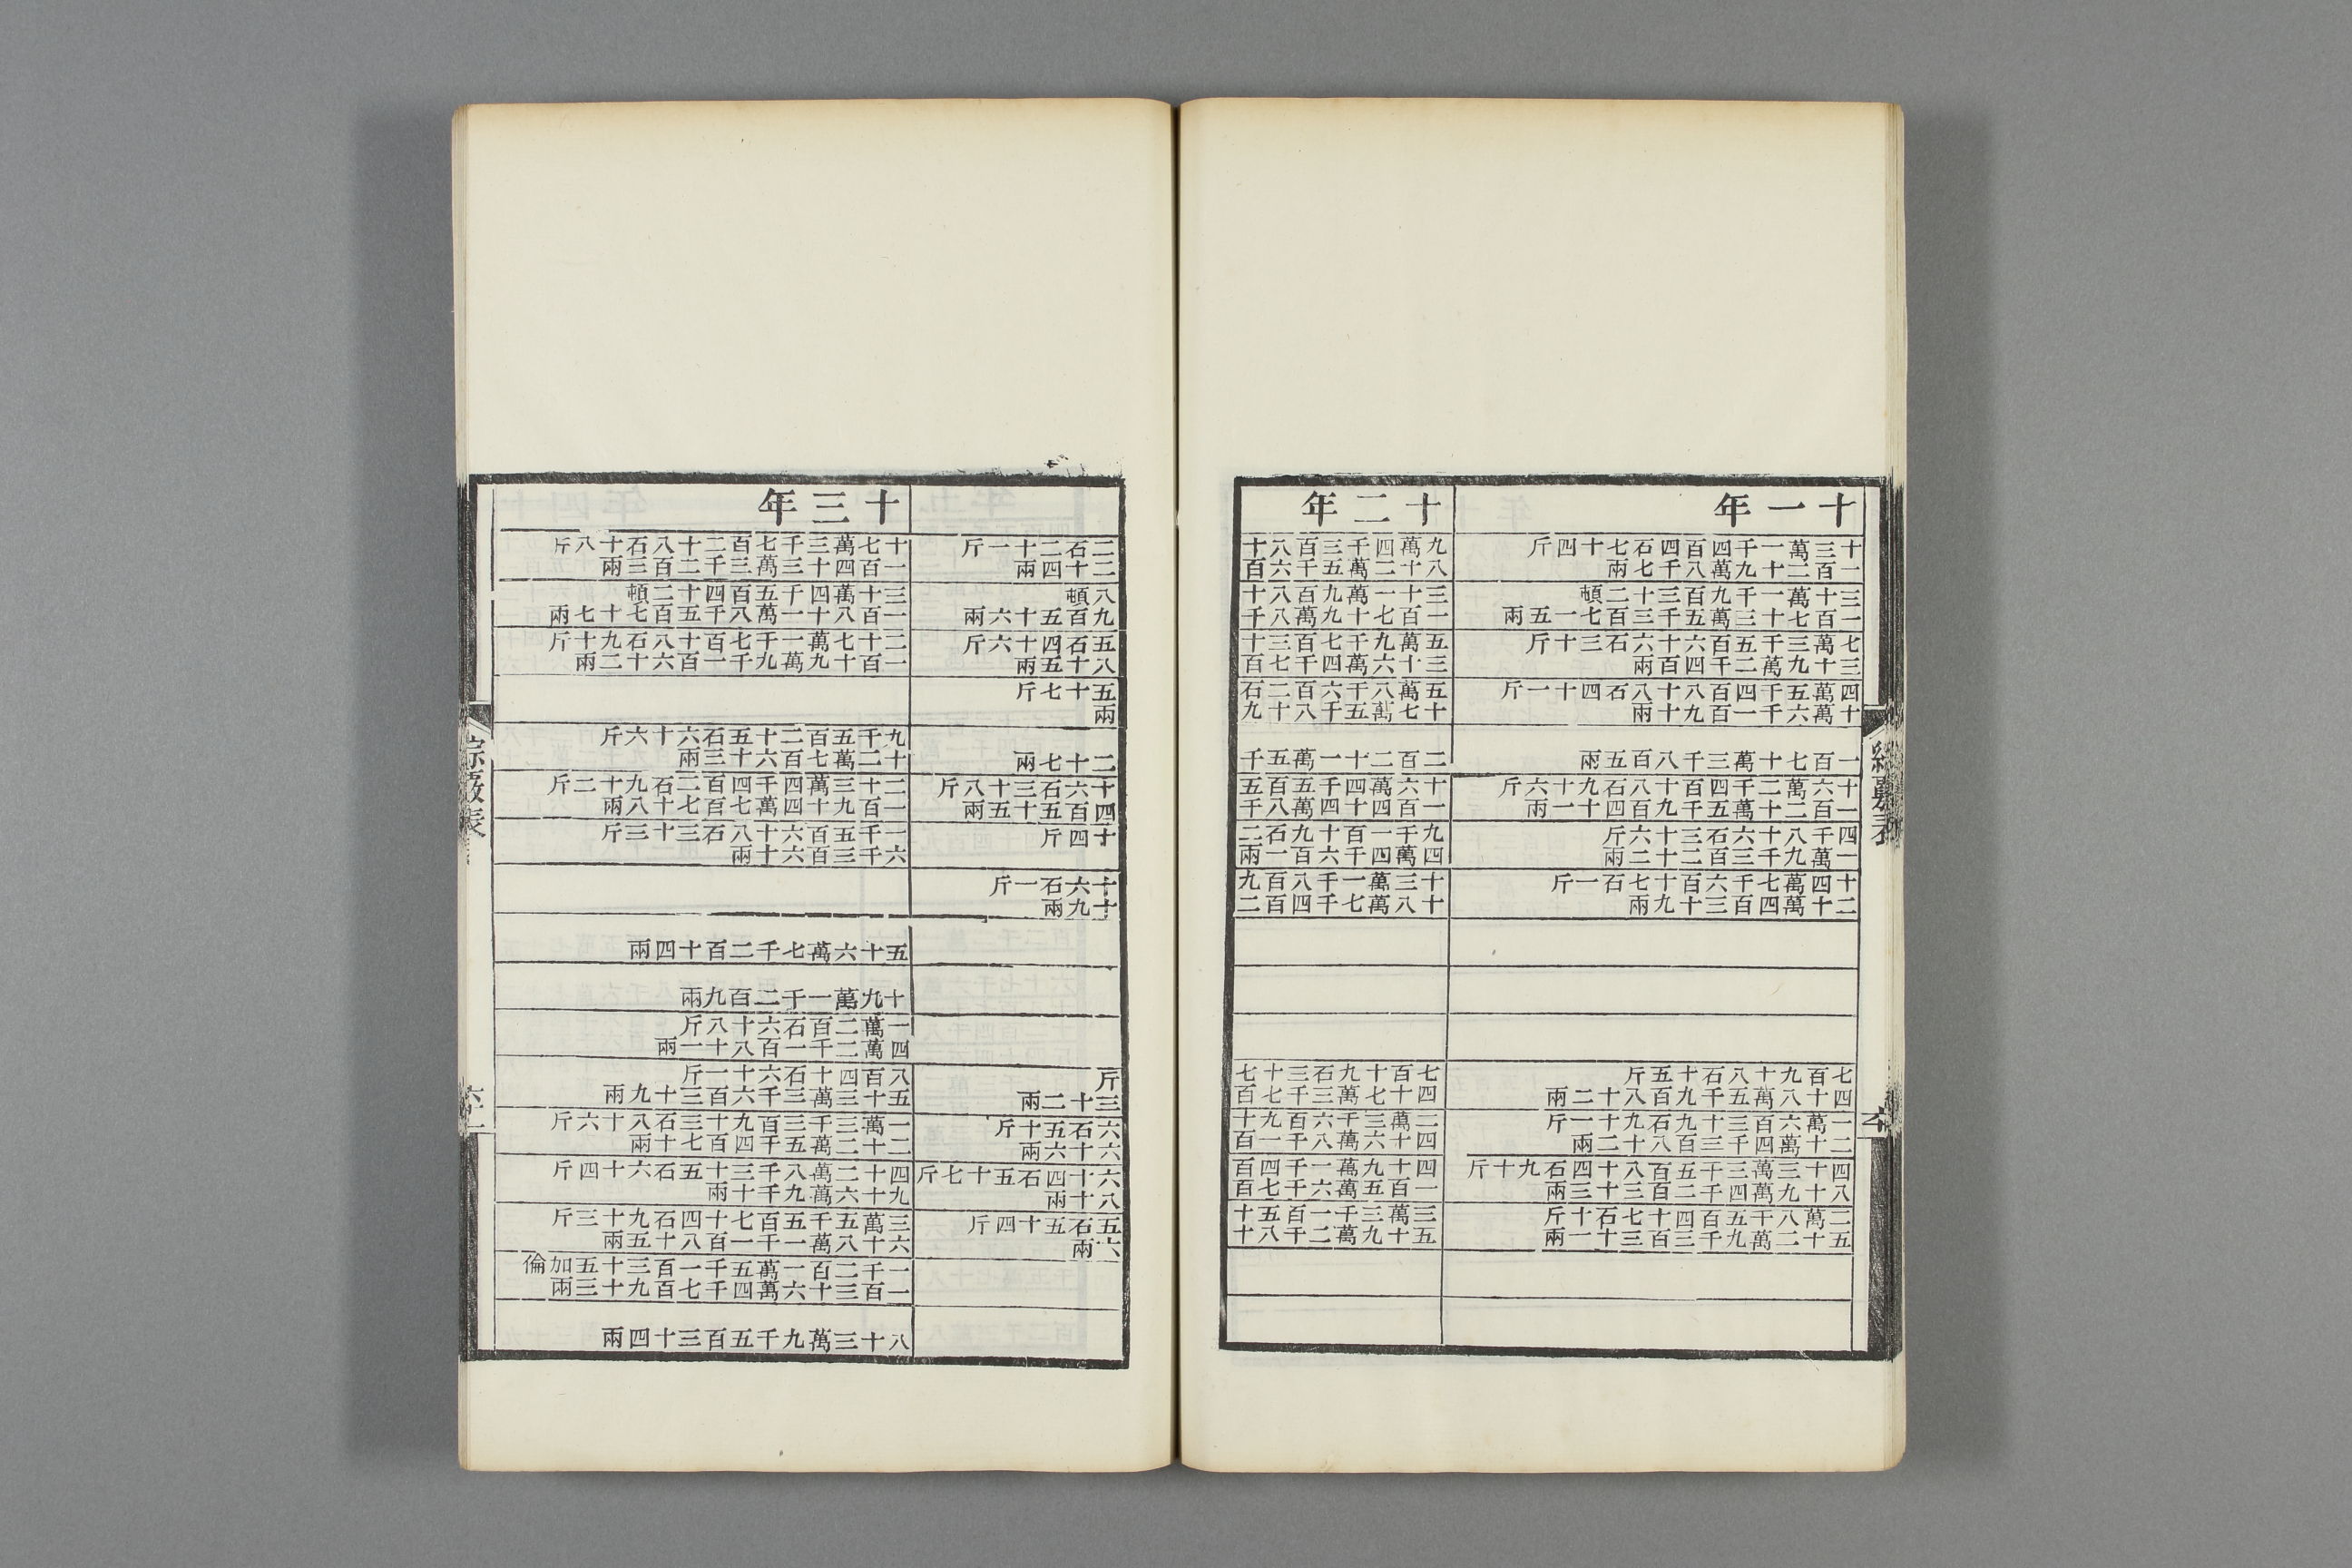 十一年
十三萬一千四百四石七十四斤
一百二十九萬八千七兩
三十萬一千九百三十二頓
一百七十三萬五千三百七一五兩
七萬三千五百六十六石三十斤
三十九萬二千四百兩
四萬五千四百八十八石四十一斤
十萬六千一百九十兩
一百七十萬三千八百五兩
十六萬二千四百十八石九十六斤
一百二十萬五千九百四十一兩
四千八十六石三十六斤
一萬九千三百二十二兩
十四萬七千六百十七石一斤
二十萬四百三十九兩
七百九十八石十五斤
四十八萬五千九百八十二兩
一萬六百三十九石九十一斤
二十萬四千三百八十二兩
四十三萬三千五百八十四石九十斤
八十九萬四千二百三十三兩
二萬八千五百四十七石十斤
五十二萬九千三百三十一兩
十二年
九萬四千三百八十
八十二萬五千六百
三十一萬九百八十
一百七十九萬八千
五萬九千七百三十
三十六萬四千七百
五萬八千六百二石
十七萬五千八十九
二百二十一萬五千
十六萬四千四百五
一百四十四萬八千
九千一百十九石二
四萬四千六百一兩
十三萬一千八百九
十八萬七千四百二
七百十九石三十七
四十七萬三千七百
二萬三千六百九十
四十六萬八千一百
四十九萬一千四百
一百五萬六千七百
三萬三千一百五十
五十九萬二千八十
綜覈表
二石二十一斤
二十四兩
八頓
九百五十六兩
五石四十六斤
八十五兩
五十七斤
兩
二十七兩
十六石三十八斤
四百五十五兩
十四斤
十六石一斤
十九兩
斤
三十二兩
六石五十斤
六十六兩
六十四石五十七斤
八十兩
五石五十四斤
六兩
十三年
十七萬三千七百二十八石十八斤
一百四十三萬三千二百三兩
三十萬四千五百四十二頓
一百八十一萬八千五百七十七兩
二十七萬一千七百十八石九十斤
一百十九萬九千一百六十二兩
九千五百二十五石六十六斤
十二萬七百六十三兩
二十三萬四千四百二石九十二斤
一百九十四萬七百七十八兩
一千五百六十八石三十三斤
六千三百六十兩
五十六萬七千二百十四兩
十九萬一千二百九兩
一萬二百石六十八斤
四萬二千一百八十一兩
八百四十石六十一斤
五十三萬三千六百三十九兩
一萬三千三百九十三石八十六斤
二十二萬五千四百七十兩
四十二萬八千三十五石六十四斤
九十六萬九千十兩
三萬五千五百七十四石九十三斤
六十八萬一千一百八十五兩
一千二百一萬五千一百三十五加倫
一百三十六萬四千七百九十三兩
八十三萬九千五百三十四兩
綜覈表